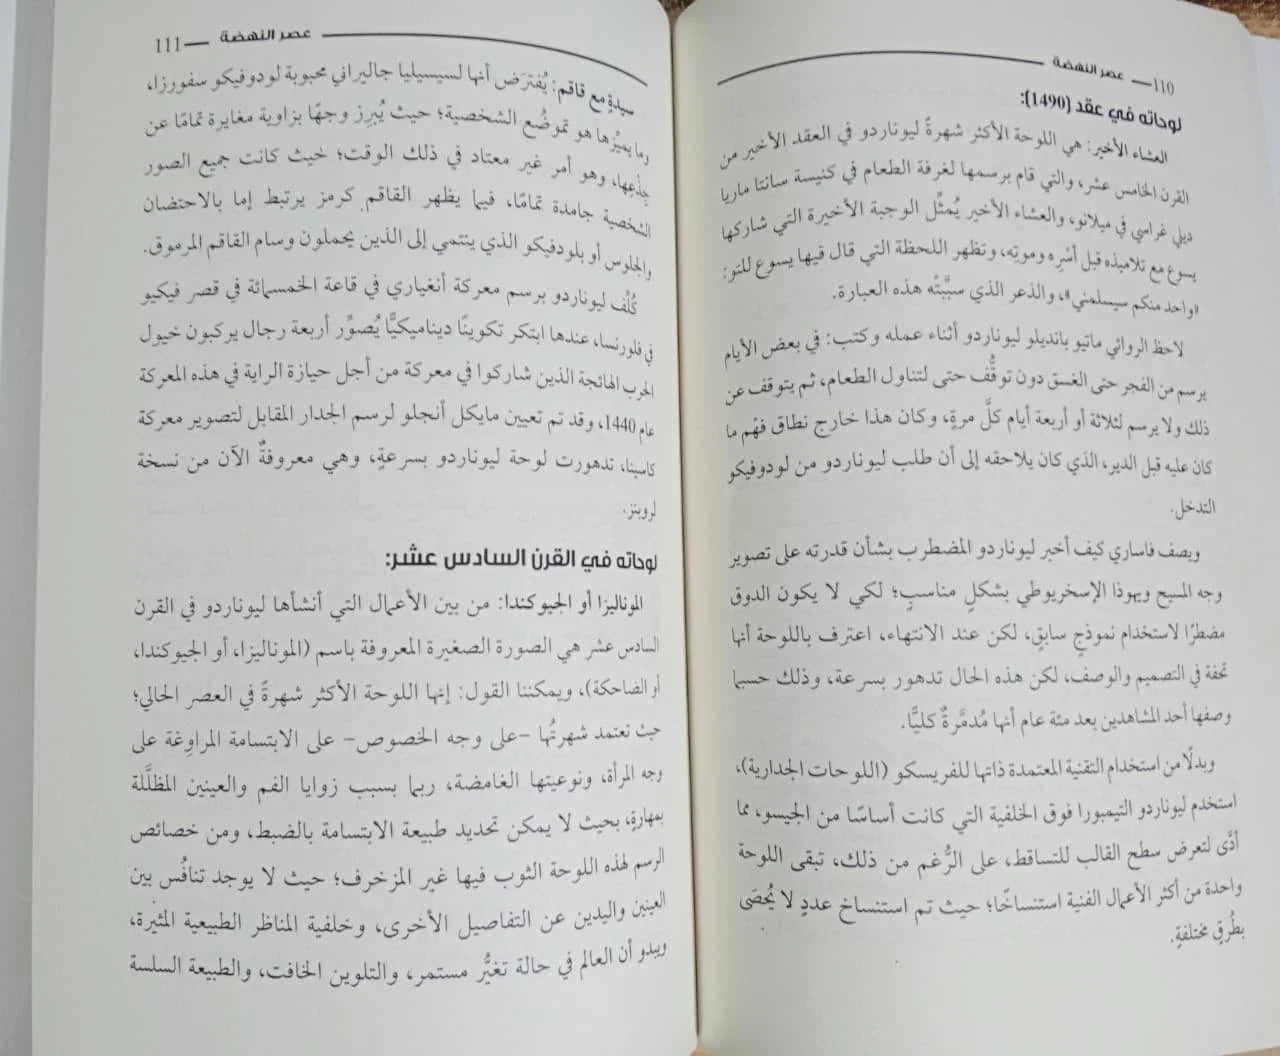 110 — عصر النهضة
لوحاته في عقد (1490):
العشاء الأخير: هي اللوحة الأكثر شهرةً ليوناردو في العقد الأخير من
القرن الخامس عشر، والتي قام برسمها لغرفة الطعام في كنيسة سانتا ماريا
ديلي غراسي في ميلانو، والعشاء الأخير يُمثِّل الوجبة الأخيرة التي شاركها
يسوع مع تلاميذه قبل أسْرِه وموتِه، وتظهر اللحظة التي قال فيها يسوع للتو:
«واحد منكم سيسلمني»، والذعر الذي سبَّبتْه هذه العبارة.
لاحظ الروائي ماتيو بانديلو ليوناردو أثناء عمله وكتب: في بعض الأيام
يرسم من الفجر حتى الغسق دون توقُّف حتى لتناول الطعام، ثم يتوقف عن
ذلك ولا يرسم لثلاثة أو أربعة أيام كلَّ مرةٍ، وكان هذا خارج نطاق فهْم ما
كان عليه قبل الدير، الذي كان يلاحقه إلى أن طلب ليوناردو من لودوفيكو
التدخل.
ويصف فاساري كيف أخبر ليوناردو المضطرب بشأن قدرته على تصوير
وجه المسيح ويهوذا الإسخريوطي بشكلٍ مناسبٍ؛ لكي لا يكون الدوق
مضطرًا لاستخدام نموذجٍ سابقٍ، لكن عند الانتهاء، اعترف باللوحة أنها
تحفة في التصميم والوصف، لكن هذه الحال تدهور بسرعة، وذلك حسبما
وصفها أحد المشاهدين بعد مئة عام أنها مُدمَّرةٌ كليًّا.
وبدلًا من استخدام التقنية المعتمدة ذاتها للفريسكو (اللوحات الجدارية)،
استخدم ليوناردو التيمبورا فوق الخلفية التي كانت أساسًا من الجيسو، مما
أدَّى لتعرض سطح القالب للتساقط، على الرُّغم من ذلك، تبقى اللوحة
واحدة من أكثر الأعمال الفنية استنساخًا؛ حيث تم استنساخ عددٍ لا يُحصَى
بطُرقٍ مختلفةٍ.
عصر النهضة — 111
سيدةٍ مع قاقم: يُفترَض أنها لسيسيليا جاليراني محبوبة لودوفيكو سفورزا،
وما يميزُها هو تموضُع الشخصية؛ حيث يُبرِز وجهًا بزاوية مغايرة تمامًا عن
جذْعِها، وهو أمر غير معتاد في ذلك الوقت؛ حيث كانت جميع الصور
الشخصية جامدة تمامًا، فيما يظهر القاقم كرمز يرتبط إما بالاحتضان
والجلوس أو بلودفيكو الذي ينتمي إلى الذين يحملون وسام القاقم المرموق.
كُلِّف ليوناردو برسم معركة أنغياري في قاعة الخمسمائة في قصر فيكيو
في فلورنسا، عندها ابتكر تكوينًا ديناميكيًّا يُصوِّر أربعة رجال يركبون خيول
الحرب الهائجة الذين شاركوا في معركة من أجل حيازة الراية في هذه المعركة
عام 1440، وقد تم تعيين مايكل أنجلو لرسم الجدار المقابل لتصوير معركة
كاسينا، تدهورت لوحة ليوناردو بسرعةٍ، وهي معروفةٌ الآن من نسخة
لروبنز.
لوحاته في القرن السادس عشر:
الموناليزا أو الجيوكندا: من بين الأعمال التي أنشأها ليوناردو في القرن
السادس عشر هي الصورة الصغيرة المعروفة باسم (الموناليزا، أو الجيوكندا،
أو الضاحكة)، ويمكننا القول: إنها اللوحة الأكثر شهرةً في العصر الحالي؛
حيث تعتمد شهرتُها -على وجه الخصوص- على الابتسامة المراوِغة على
وجه المرأة، ونوعيتها الغامضة، ربما بسبب زوايا الفم والعينين المظلَّلة
بمهارةٍ، بحيث لا يمكن تحديد طبيعة الابتسامة بالضبط، ومن خصائص
الرسم لهذه اللوحة الثوب فيها غير المزخرف؛ حيث لا يوجد تنافُس بين
العينين واليدين عن التفاصيل الأخرى، وخلفية المناظر الطبيعية المثيرة،
ويبدو أن العالم في حالة تغيُّر مستمر، والتلوين الخافت، والطبيعة السلسة